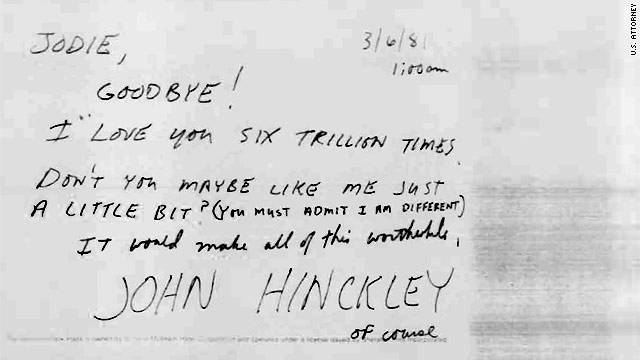 U.S. ATTORNEY
JODIE,
3/6/81
1:00am
GOODBYE!
I LOVE you SIX TRILLION TIMES.
DON'T YOU MAYBE LIKE ME JUST
A LITTLE BIT? (YOU MUST ADMIT I AM DIFFERENT)
IT would make all of this worthwhile.
JOHN HINCKLEY
of course